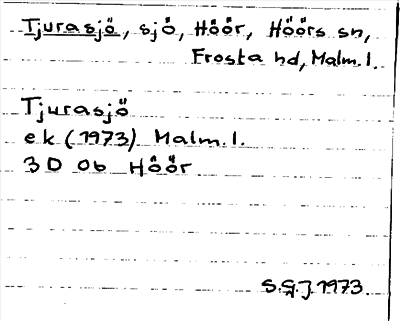 Tjurasjö, sjö, Höör, Höörs sn,
Frosta hd, Malm. l.
Tjurasjö
ek (1973) Malm. l.
3 D 0b Höör
S.G.J 1973.